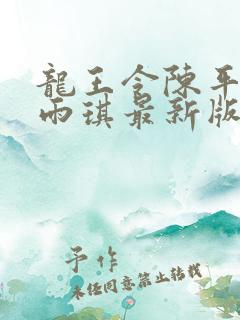 龍王令陳平
雨琪最新版
予作
未经同意禁止转载